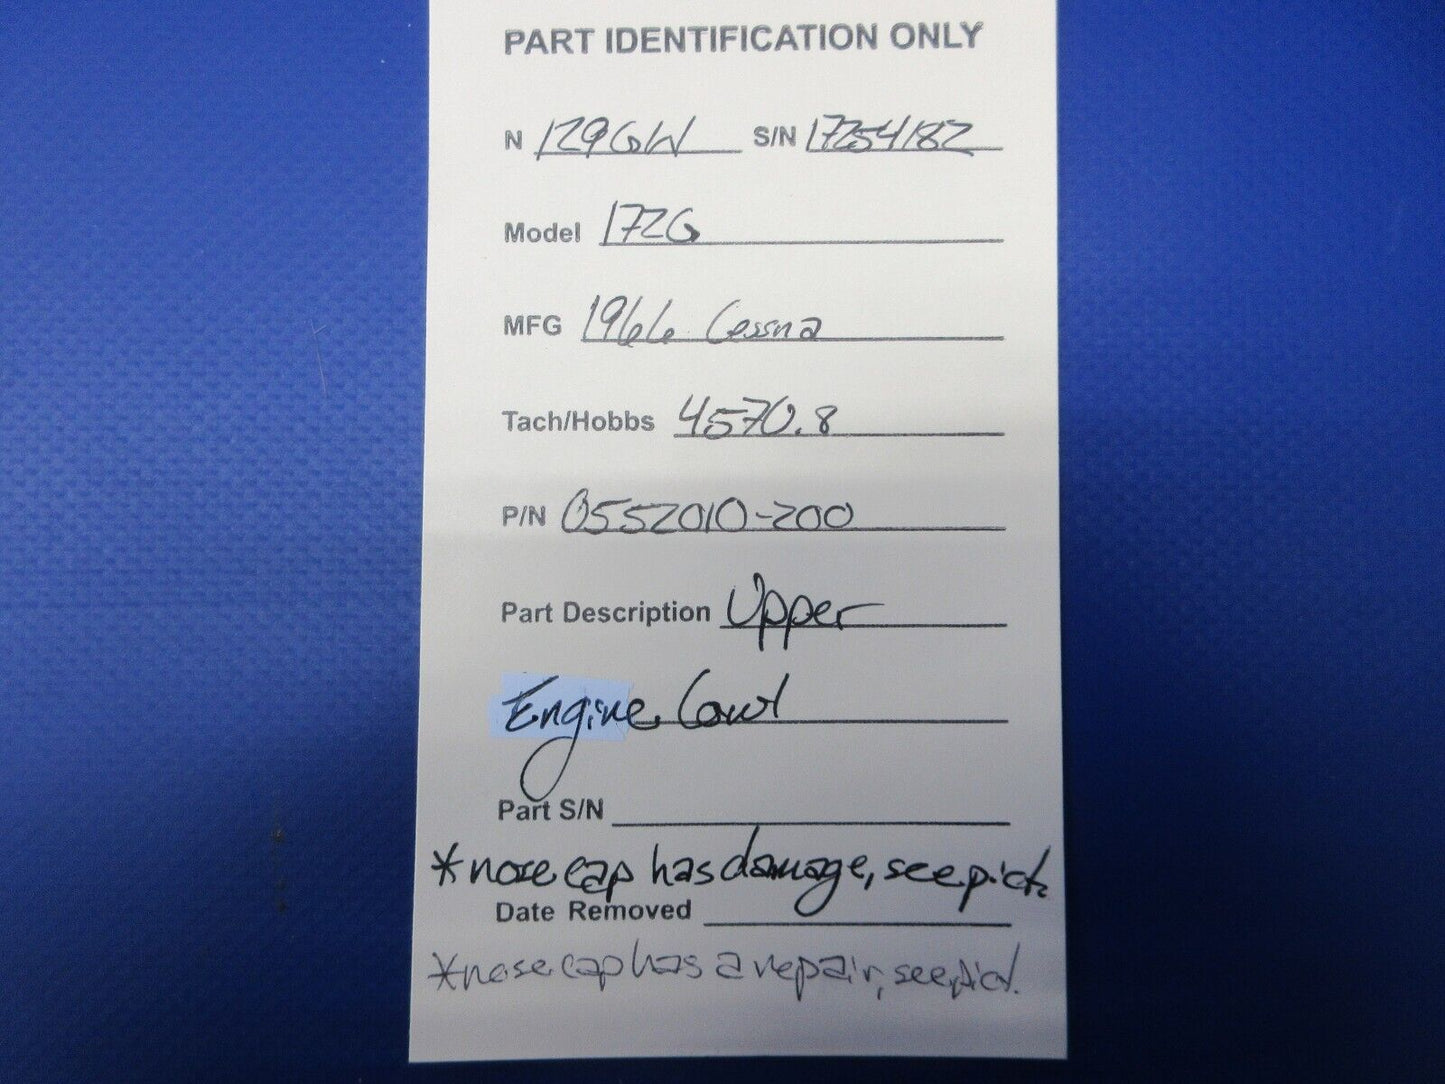 PART IDENTIFICATION ONLY
N 129GW S/N 17254182
Model 172G
MFG 1966 Cessna
Tach/Hobbs 4570.8
P/N 0552010-200
Part Description Upper
Engine Cowl
Part S/N
*nose cap has damage, see pict.
Date Removed
*nose cap has a repair, see pict.